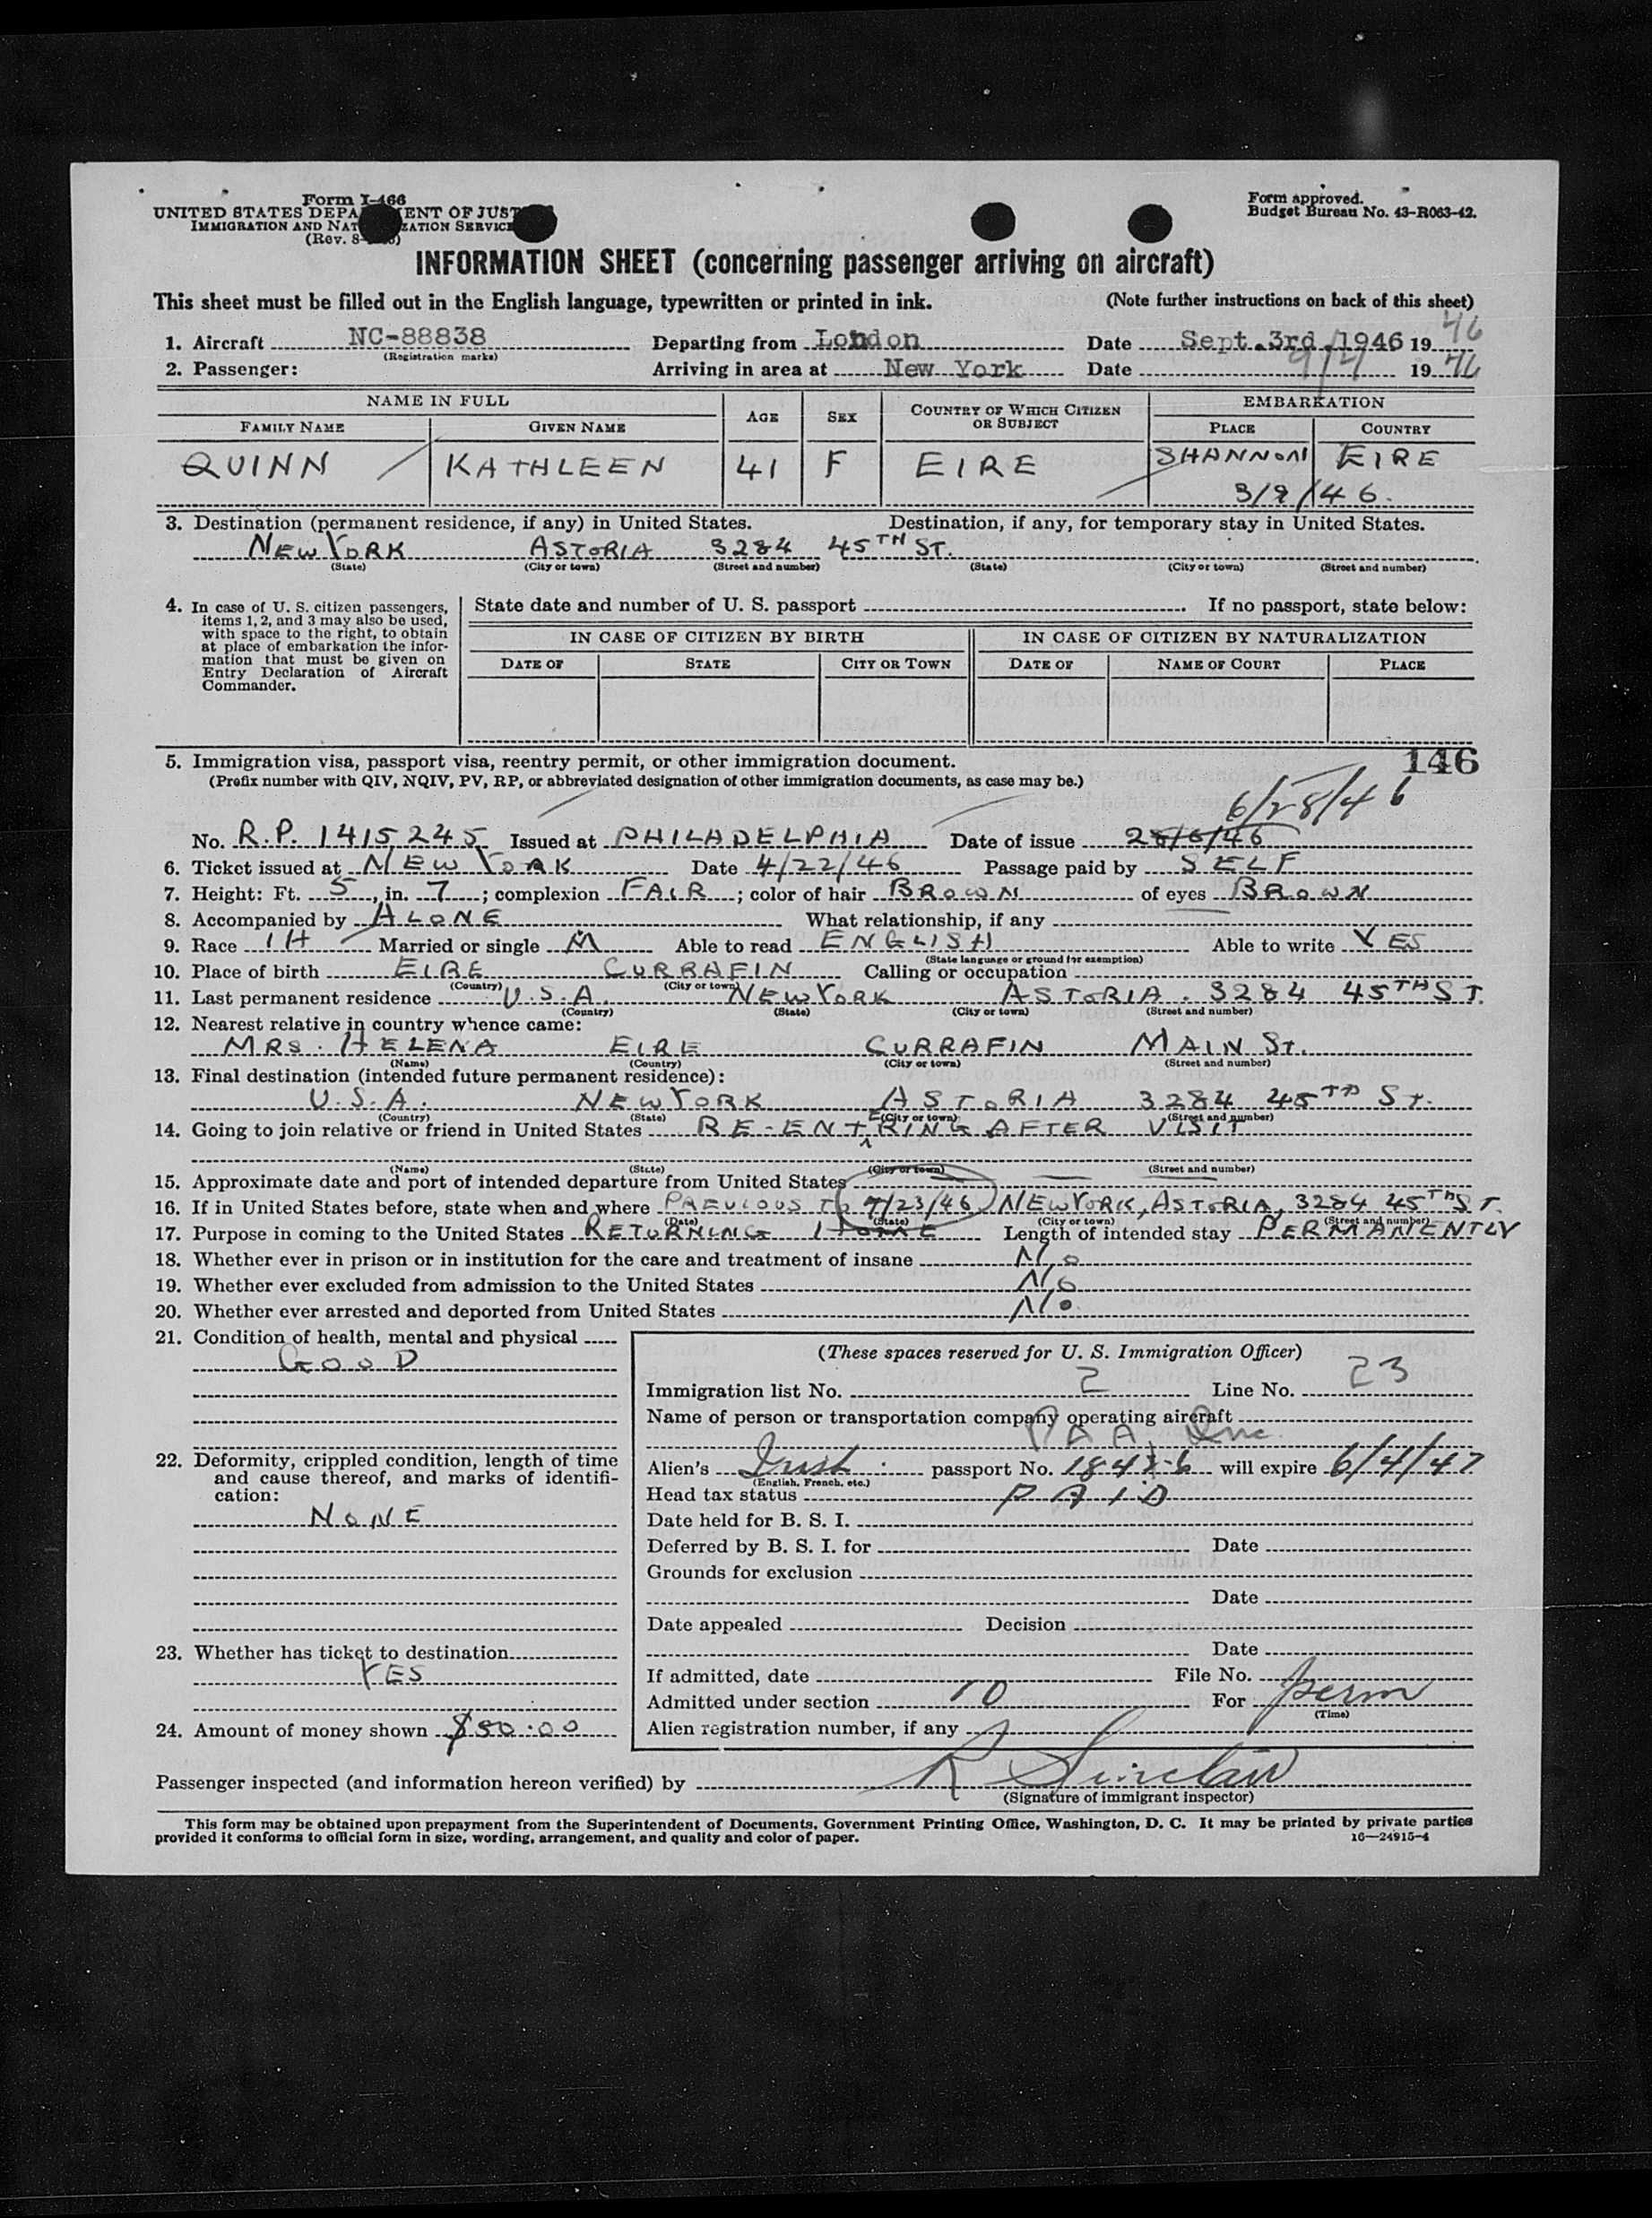 Form I-466
UNITED STATES DEPA ENT OF JUST
IMMIGRATION AND NAT ZATION SERVICE
(Rev. 8-
Form approved.
Budget Bureau No. 43-R063-42.
INFORMATION SHEET (concerning passenger arriving on aircraft)
This sheet must be filled out in the English language, typewritten or printed in ink. (Note further instructions on back of this sheet)
1. Aircraft NC-88838 Departing from London Date Sept. 3rd, 1946 19 46
(Registration marks)
2. Passenger: Arriving in area at New York Date 9/4 19 46
NAME IN FULL AGE SEX COUNTRY OF WHICH CITIZEN OR SUBJECT EMBARKATION
FAMILY NAME GIVEN NAME PLACE COUNTRY
QUINN KATHLEEN 41 F EIRE SHANNON EIRE
3/9/46.
3. Destination (permanent residence, if any) in United States. Destination, if any, for temporary stay in United States.
NEW YORK ASTORIA 3284 45TH ST.
(State) (City or town) (Street and number) (State) (City or town) (Street and number)
4. In case of U. S. citizen passengers, items 1, 2, and 3 may also be used, with space to the right, to obtain at place of embarkation the information that must be given on Entry Declaration of Aircraft Commander.
State date and number of U. S. passport If no passport, state below:
IN CASE OF CITIZEN BY BIRTH IN CASE OF CITIZEN BY NATURALIZATION
DATE OF STATE CITY OR TOWN DATE OF NAME OF COURT PLACE
5. Immigration visa, passport visa, reentry permit, or other immigration document. 146
(Prefix number with QIV, NQIV, PV, RP, or abbreviated designation of other immigration documents, as case may be.)
6/28/46
No. R.P. 1415245 Issued at PHILADELPHIA Date of issue 28/6/46
6. Ticket issued at NEW YORK Date 4/22/46 Passage paid by SELF
7. Height: Ft. 5, in. 7; complexion FAIR; color of hair BROWN of eyes BROWN
8. Accompanied by ALONE What relationship, if any
9. Race IH Married or single M Able to read ENGLISH Able to write YES
(State language or ground for exemption)
10. Place of birth EIRE CURRAFIN Calling or occupation
(Country) (City or town)
11. Last permanent residence U.S.A. NEW YORK ASTORIA. 3284 45TH ST.
(Country) (State) (City or town) (Street and number)
12. Nearest relative in country whence came:
MRS. HELENA EIRE CURRAFIN MAIN ST.
(Name) (Country) (City or town) (Street and number)
13. Final destination (intended future permanent residence):
U.S.A. NEW YORK ASTORIA 3284 45TH ST.
(Country) (State) (City or town) (Street and number)
14. Going to join relative or friend in United States RE-ENTERING AFTER VISIT
(Name) (State) (City or town) (Street and number)
15. Approximate date and port of intended departure from United States
16. If in United States before, state when and where PREVIOUS TO 7/23/46 NEW YORK, ASTORIA, 3284 45TH ST.
(Date) (State) (City or town) (Street and number)
17. Purpose in coming to the United States RETURNING HOME Length of intended stay PERMANENTLY
18. Whether ever in prison or in institution for the care and treatment of insane NO
19. Whether ever excluded from admission to the United States NO
20. Whether ever arrested and deported from United States NO
21. Condition of health, mental and physical
GOOD
22. Deformity, crippled condition, length of time and cause thereof, and marks of identification:
NONE
23. Whether has ticket to destination
YES
24. Amount of money shown $50.00
(These spaces reserved for U. S. Immigration Officer)
Immigration list No. 2 Line No. 23
Name of person or transportation company operating aircraft
PAA, Inc.
Alien's Irish passport No. will expire 6/4/47
(English, French, etc.)
Head tax status PAID
Date held for B. S. I.
Deferred by B. S. I. for Date
Grounds for exclusion
Date
Date appealed Decision
Date
If admitted, date File No.
Admitted under section 10 For perm
(Time)
Alien registration number, if any
Passenger inspected (and information hereon verified) by R Sinclair
(Signature of immigrant inspector)
This form may be obtained upon prepayment from the Superintendent of Documents, Government Printing Office, Washington, D. C. It may be printed by private parties
provided it conforms to official form in size, wording, arrangement, and quality and color of paper. 16—24915-4